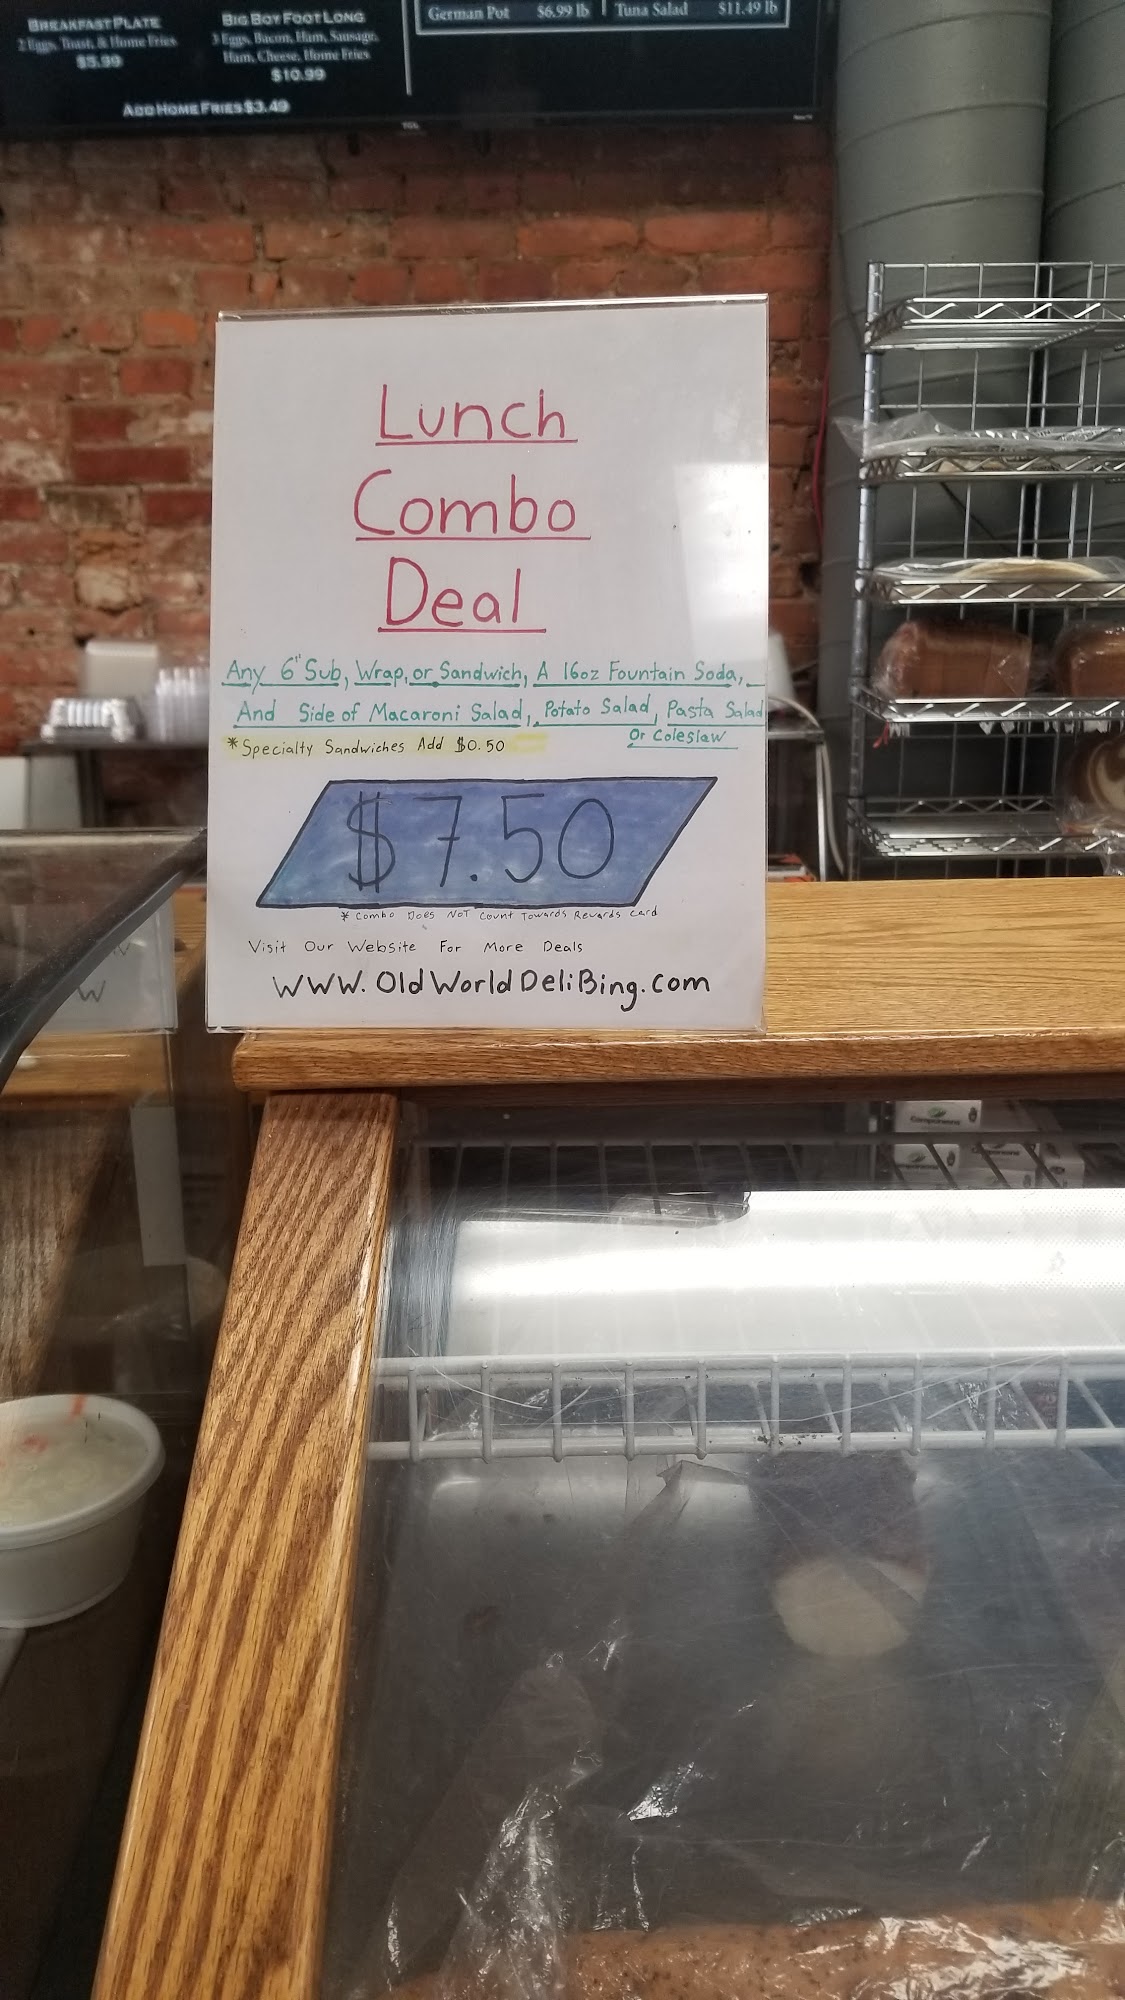 BREAKFAST PLATE
2 Eggs, Toast, & Home Fries
$5.99
BIG BOY FOOT LONG
3 Eggs, Bacon, Ham, Sausage,
Ham, Cheese, Home Fries
$10.99
ADD HOME FRIES $3.49
German Pot $6.99 lb
Tuna Salad $11.49 lb
TCL
Lunch
Combo
Deal
Any 6" Sub, Wrap, or Sandwich, A 16oz Fountain Soda,
And Side of Macaroni Salad, Potato Salad, Pasta Salad
Or Coleslaw
*Specialty Sandwiches Add $0.50
$7.50
* Combo Does NOT Count Towards Rewards Card
Visit Our Website For More Deals
WWW.OldWorldDeliBing.com
W